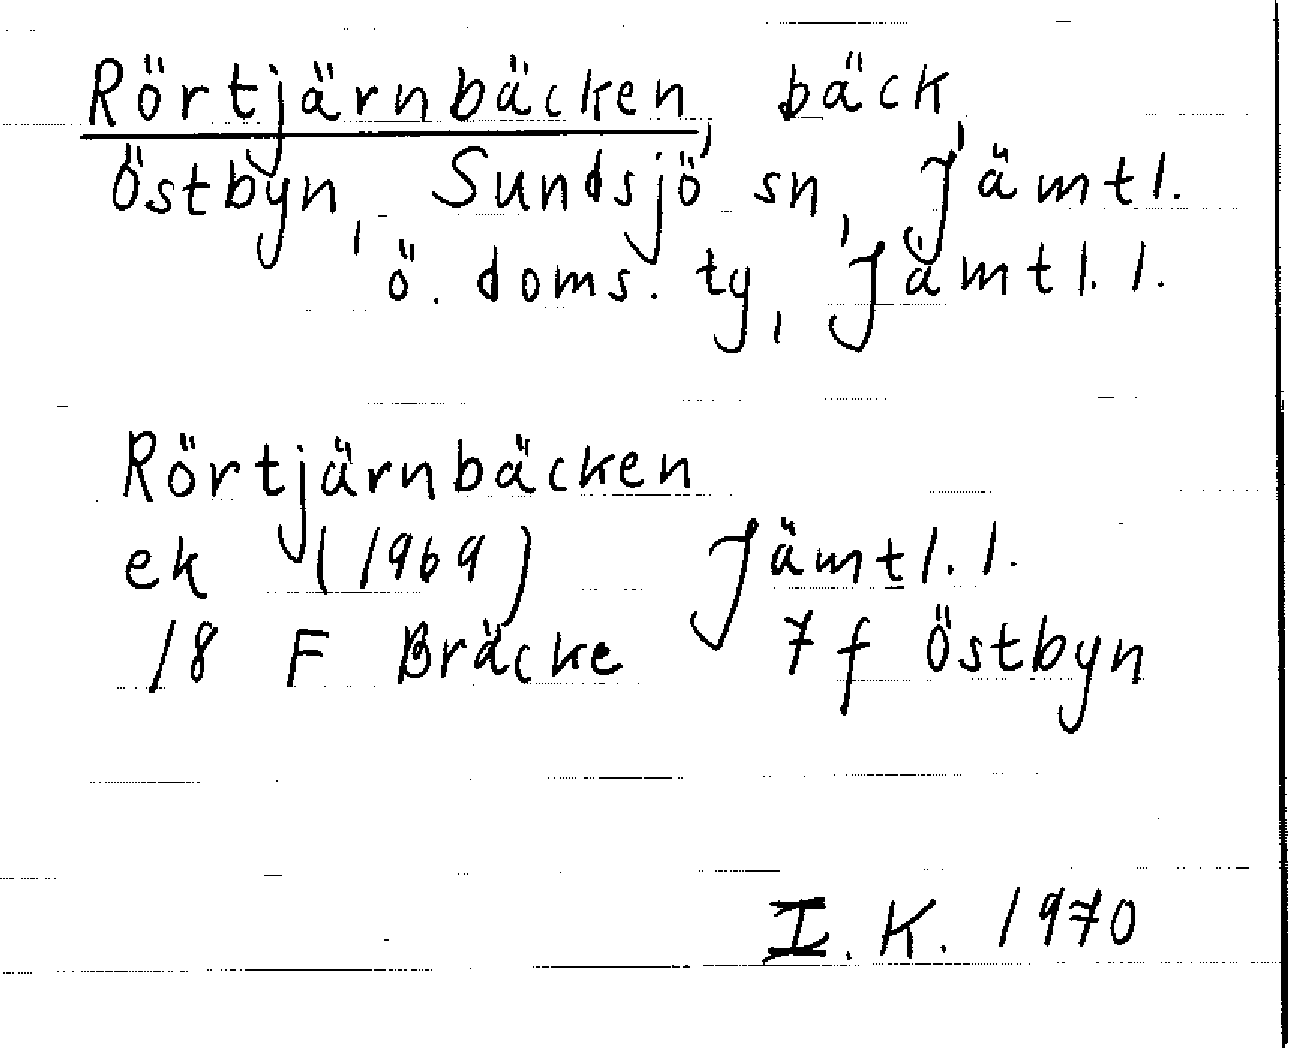 Rörtjärnbäcken, bäck,
Östbyn, Sundsjö sn, Jämtl.
ö. doms. tg, Jämtl. l.
Rörtjärnbäcken
ek (1969) Jämtl. l.
18 F Bräcke 7 f Östbyn
I. K. 1970